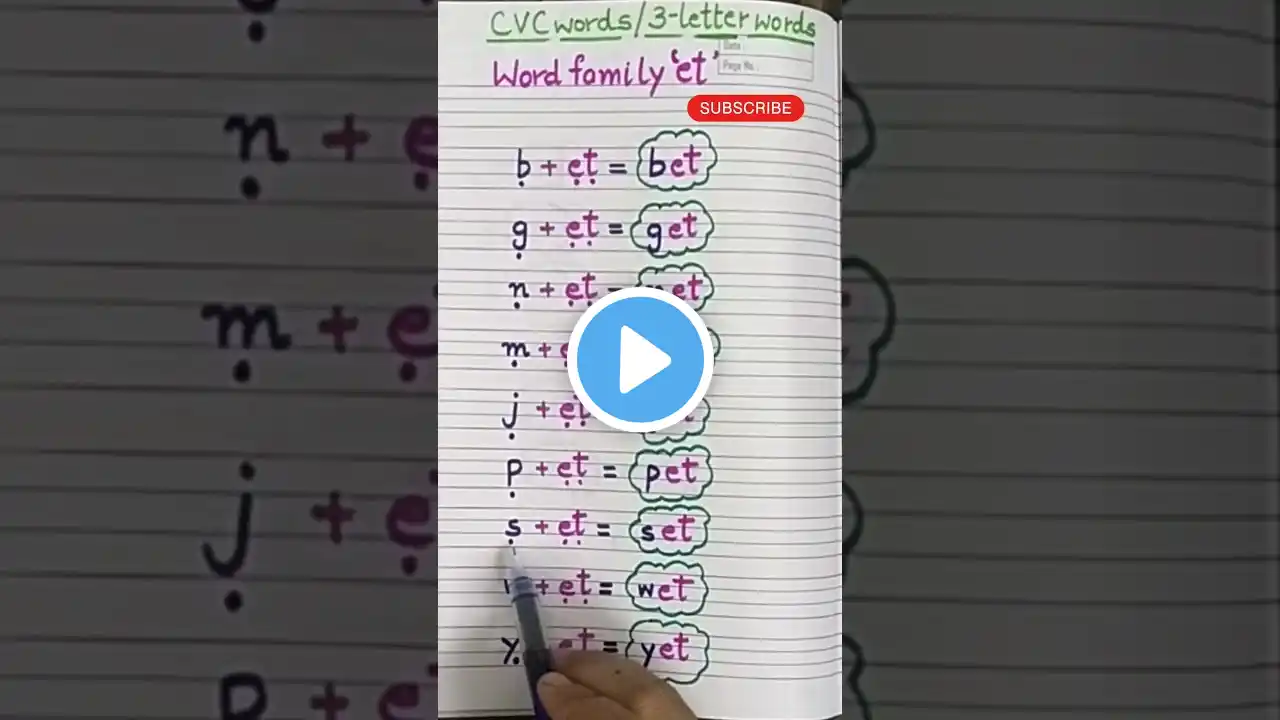 CVC words/3-letter words
Date
Page No.
Word family 'et'
SUBSCRIBE
b + et = bet
g + et = get
n + et = net
m +
j + et
p + et = pet
s + et = set
+ et = wet
y et = yet
n +
m +
j +
p +